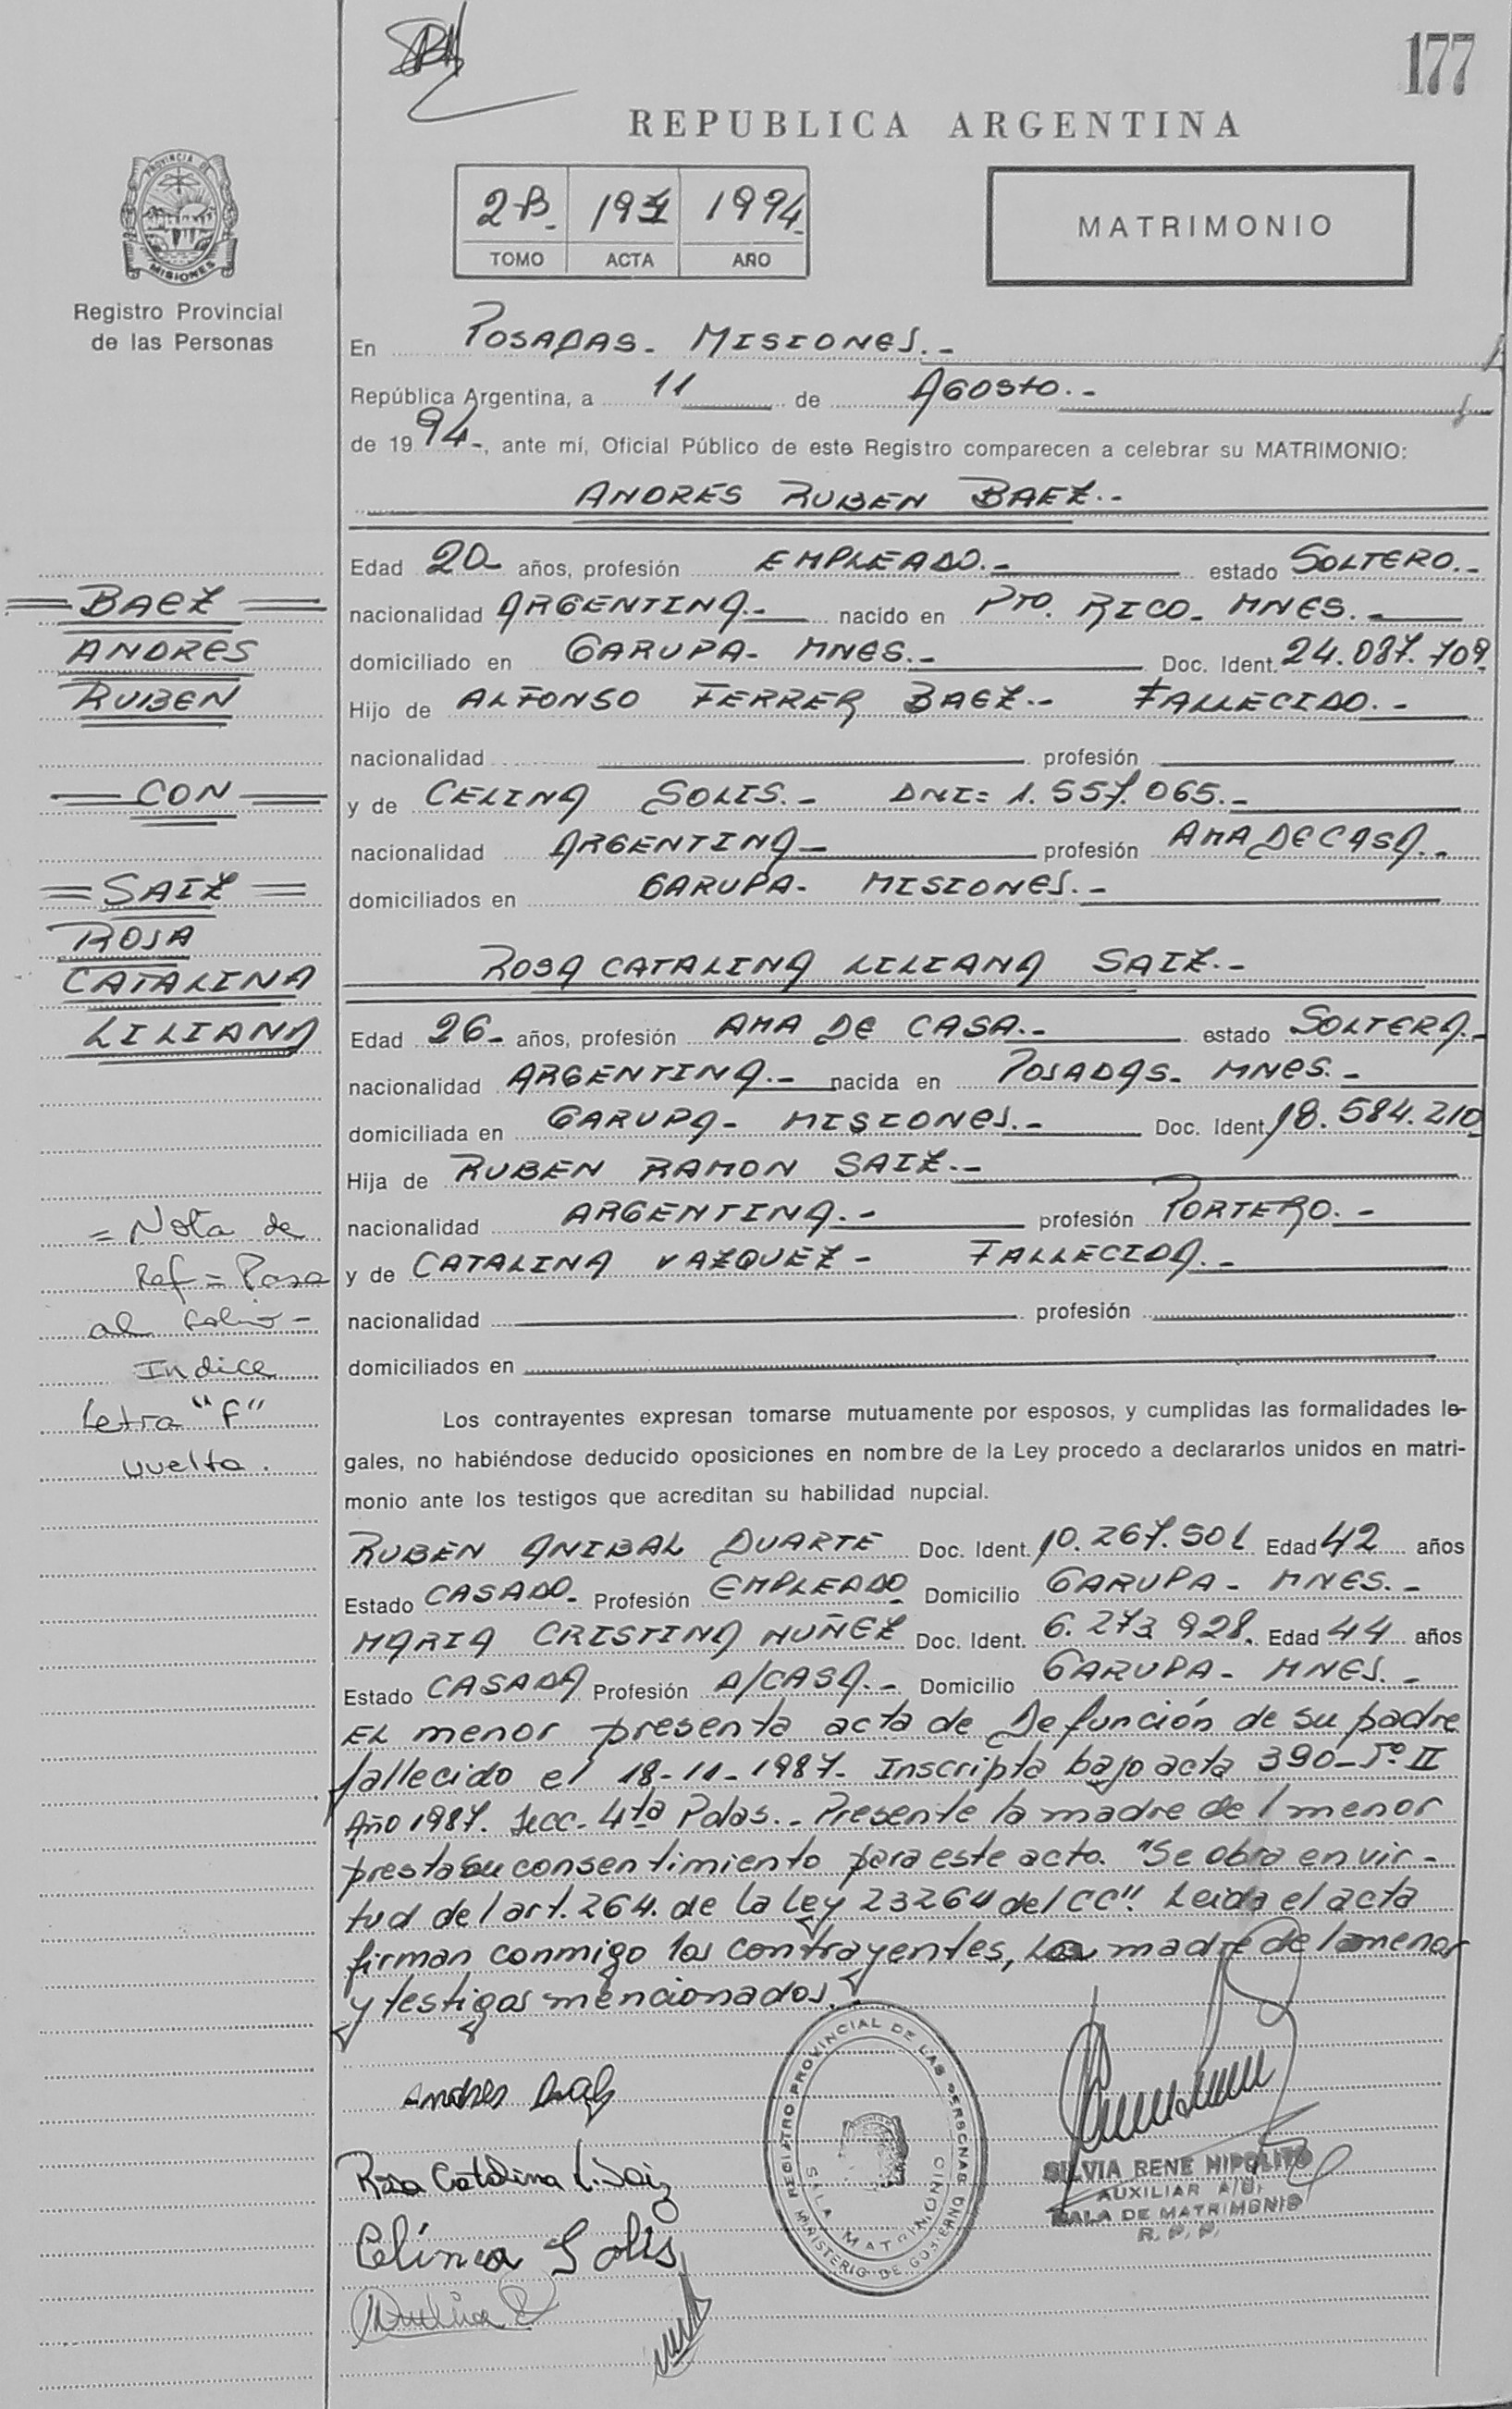 177
REPUBLICA ARGENTINA
2-B- 1994-
TOMO ACTA AÑO
MATRIMONIO
PROVINCIA DE MISIONES
Registro Provincial
de las Personas
En POSADAS- MISIONES.-
República Argentina, a 11 de AGOSTO.-
de 1994-, ante mí, Oficial Público de este Registro comparecen a celebrar su MATRIMONIO:
ANDRES RUBEN BAEZ.-
Edad 20- años, profesión EMPLEADO.- estado SOLTERO.-
nacionalidad ARGENTINA.- nacido en PTO. RICO- MNES.-
domiciliado en GARUPA- MNES.- Doc. Ident. 24.087.709
Hijo de ALFONSO FERRER BAEZ.- FALLECIDO.-
nacionalidad profesión
y de CELINA SOLIS.- DNI= 1.557.065.-
nacionalidad ARGENTINA- profesión AMA DE CASA.-
domiciliados en GARUPA- MISIONES.-
ROSA CATALINA LILIANA SAIZ.-
Edad 26- años, profesión AMA DE CASA.- estado SOLTERA.-
nacionalidad ARGENTINA.- nacida en POSADAS- MNES.-
domiciliada en GARUPA- MISIONES.- Doc. Ident. 18.584.210
Hija de RUBEN RAMON SAIZ.-
nacionalidad ARGENTINA.- profesión PORTERO.-
y de CATALINA VAZQUEZ- FALLECIDA.-
nacionalidad profesión
domiciliados en
Los contrayentes expresan tomarse mutuamente por esposos, y cumplidas las formalidades le-
gales, no habiéndose deducido oposiciones en nombre de la Ley procedo a declararlos unidos en matri-
monio ante los testigos que acreditan su habilidad nupcial.
RUBEN ANIBAL DUARTE Doc. Ident. 10.267.501 Edad 42 años
Estado CASADO- Profesión EMPLEADO Domicilio GARUPA- MNES.-
MARIA CRISTINA NUÑEZ Doc. Ident. 6.273.928. Edad 44 años
Estado CASADA Profesión A/CASA.- Domicilio GARUPA- MNES.-
EL menor presenta acta de Defunción de su padre
fallecido el 18-11-1987- Inscripta bajo acta 390-Tº II
Año 1987. Secc. 4ta Pdas.- Presente la madre del menor
presta su consentimiento para este acto. "Se obra en vir-
tud del art. 264. de la Ley 23264 del CC". Leida el acta
firman conmigo los contrayentes, la madre del menor
y testigos mencionados.
BAEZ
ANDRES
RUBEN
CON
=SAIZ=
ROSA
CATALINA
LILIANA
= Nota de
Ref = Pasa
al folio-
Indice
Letra "F"
vuelta.
Andres Baez
Rosa Catalina L. Saiz
Celinea Solis
REGISTRO PROVINCIAL DE LAS PERSONAS
SALA MATRIMONIO
MINISTERIO DE GOBIERNO
SILVIA RENE HIPOLITO
AUXILIAR A/C.
SALA DE MATRIMONIO
R. P. P.